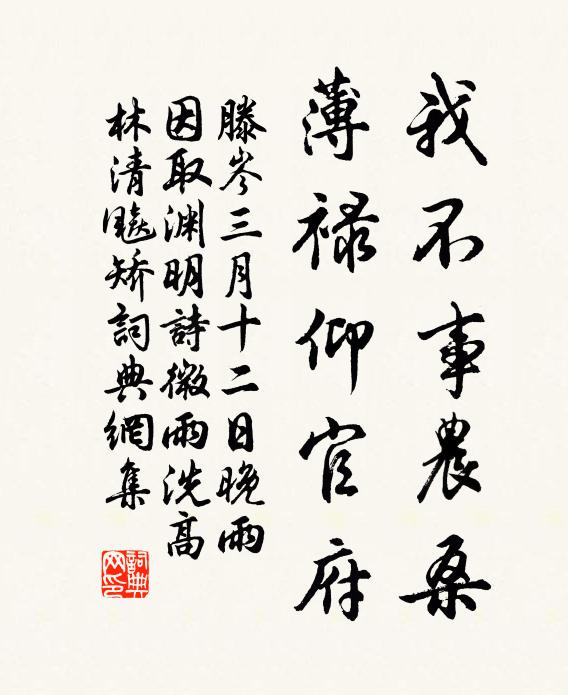 我不事農桑
薄祿仰官府
滕岑三月十二日晚雨
因取淵明詩微雨洗高
林清飈矯詞典網集
詞典
网印